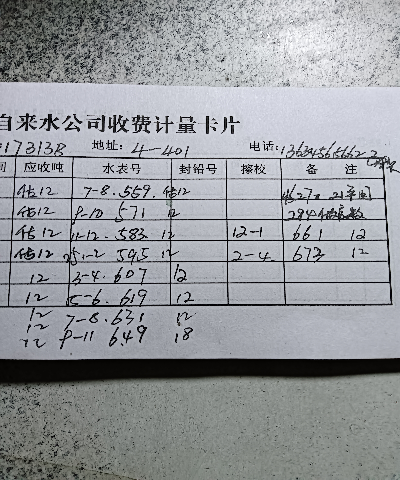 自来水公司收费计量卡片
173138 地址: 4-401 电话:
间 应收吨 水表号 封铅号 擦校 备 注
估12 7-8. 559. 估12
估12 9-10 571 12
估12 11-12. 583 12 12-1 661 12
估12 25.1-2 595 12 2-4 673 12
12 3-4. 607 12
12 5-6. 619 12
12 7-8. 631 12
12 9-11 649 18